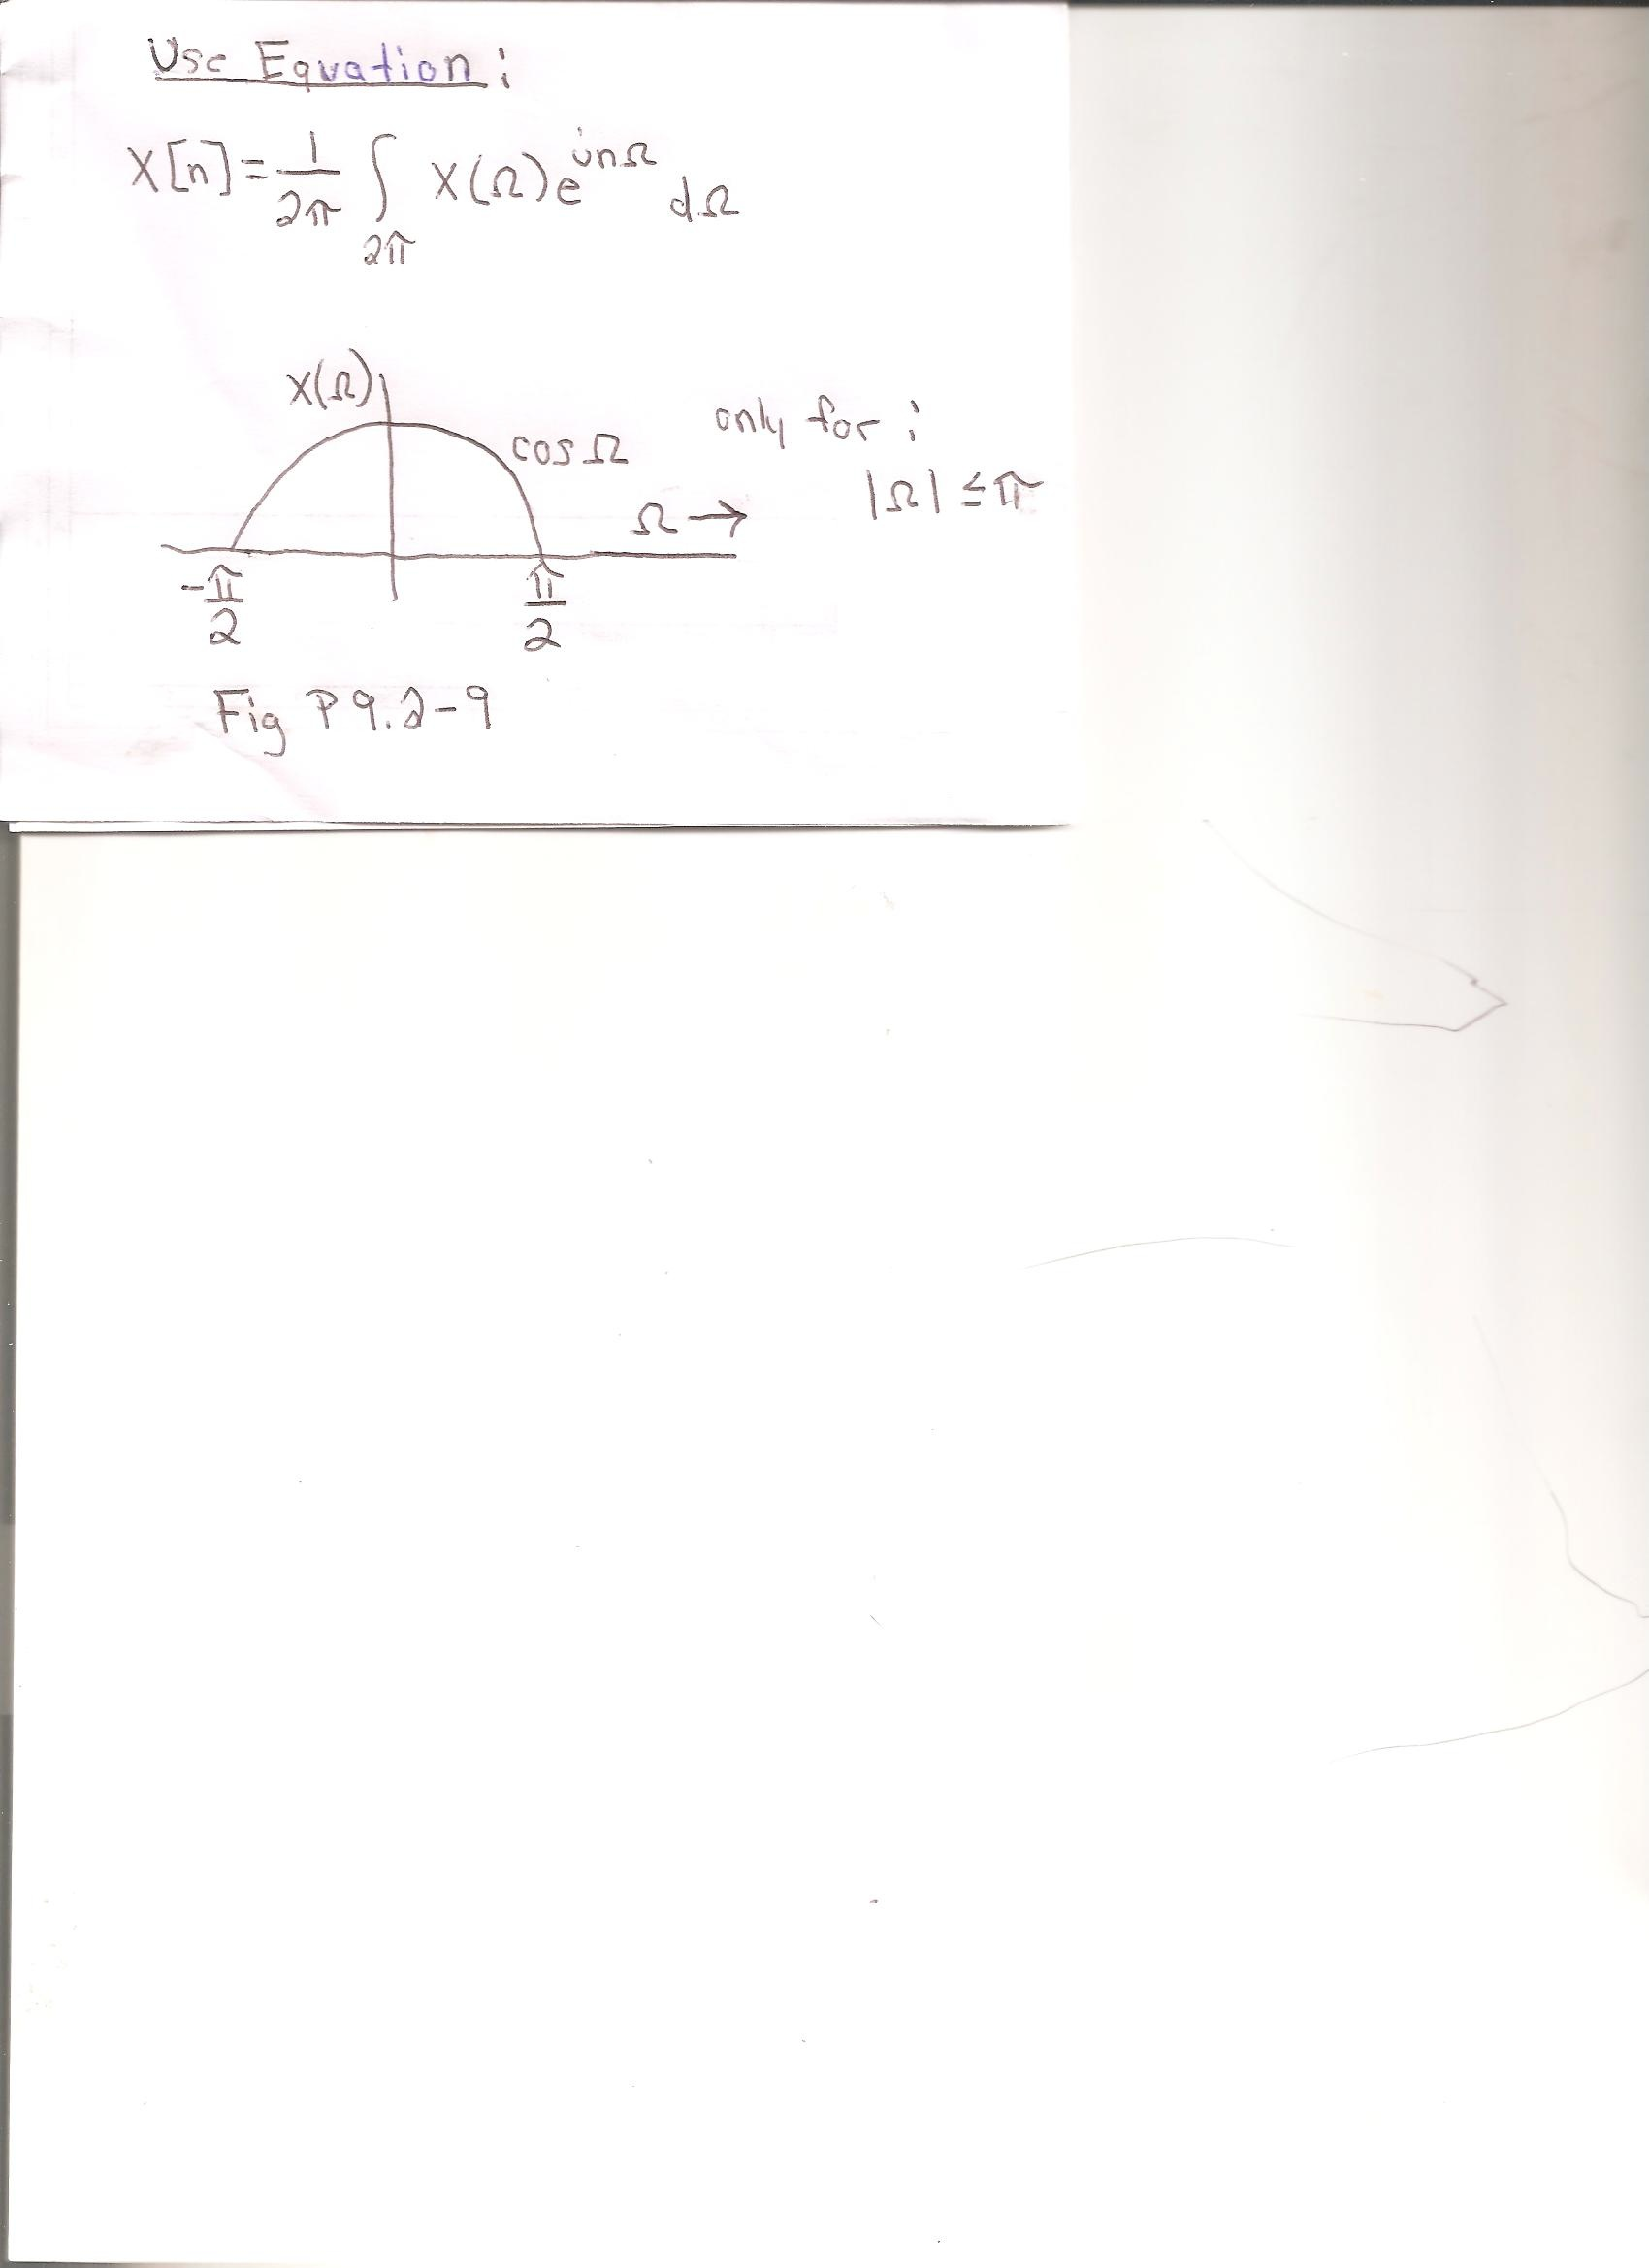 Use Equation:
X[n] = 1/2π ∫2π X(Ω)e^jnΩ dΩ
X(Ω)
cos Ω
only for:
|Ω| ≤ π
Ω →
-π/2
π/2
Fig P9.2-9